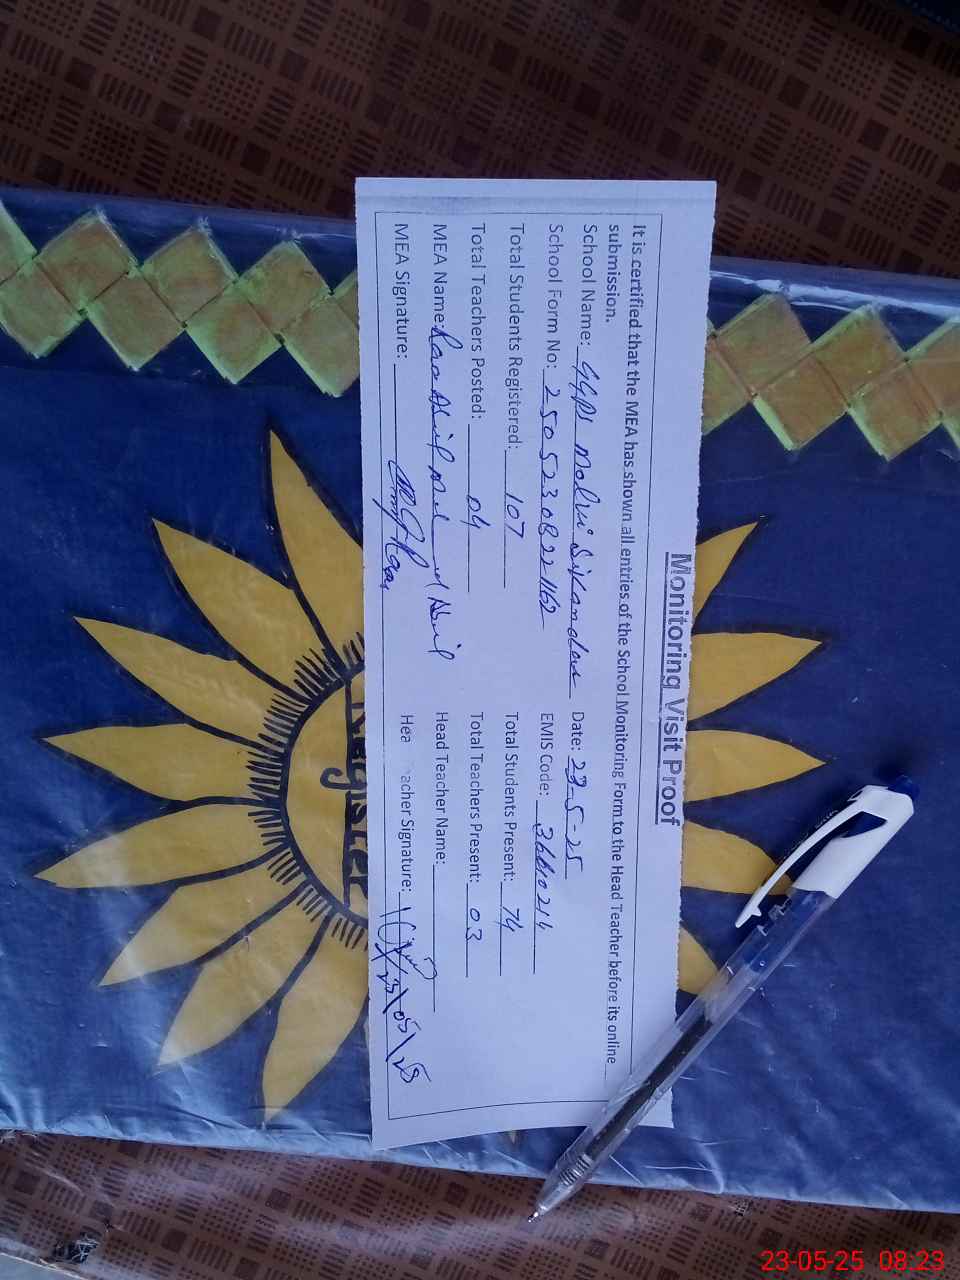 Monitoring Visit Proof
It is certified that the MEA has shown all entries of the School Monitoring Form to the Head Teacher before its online
submission.
School Name: GGPS Molvi Sikandar Date: 23-5-25
School Form No: 25052308221162 EMIS Code: 36440214
Total Students Registered: 107 Total Students Present: 74
Total Teachers Posted: 04 Total Teachers Present: 03
MEA Name: Head Teacher Name:
MEA Signature: Hea acher Signature: 23/05/25
Register
23-05-25 08:23